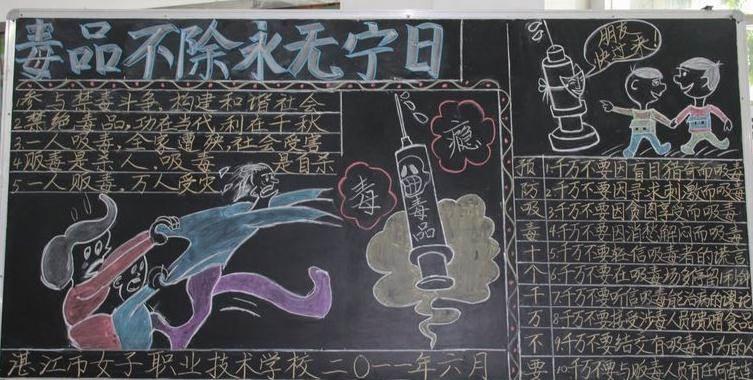 毒品不除永无宁日
参与禁毒斗争 构建和谐社会
2.禁绝毒品,功在当代,利在千秋
3.一人吸毒,全家遭殃,社会受害
4.贩毒是杀人,吸毒 是自杀
5.一人贩毒,万人受灾
瘾
毒
毒品
朋友
快过来!
预防吸毒十个千万不要
1.千万不要因盲目猎奇而吸毒
2.千万不要因寻求刺激而吸毒
3.千万不要因贪图享受而吸毒
4.千万不要因消愁解闷而吸毒
5.千万不要轻信吸毒者的谎言
6.千万不要在吸毒场所停留
7.千万不要听信吸毒能治病的谎言
8.千万不要接受涉毒人员馈赠
9.千万不要结交有吸毒行为的人
10.千万不要与贩毒人员有任何
湛江市女子职业技术学校 二〇一一年六月